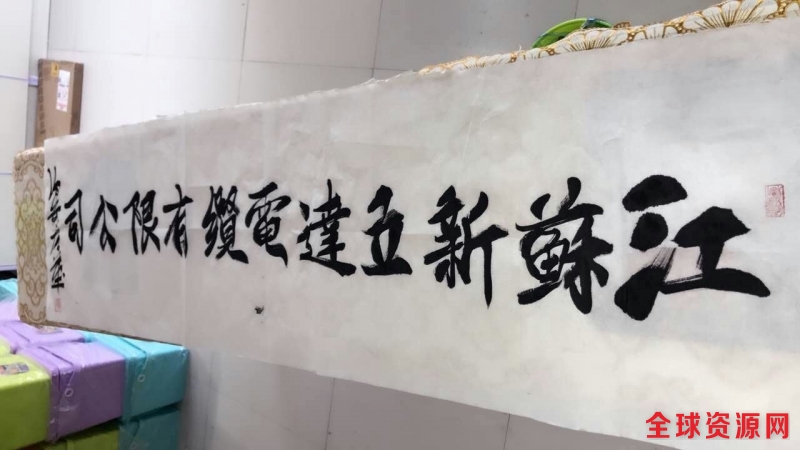 江蘇新立達電纜有限公司
全球资源网